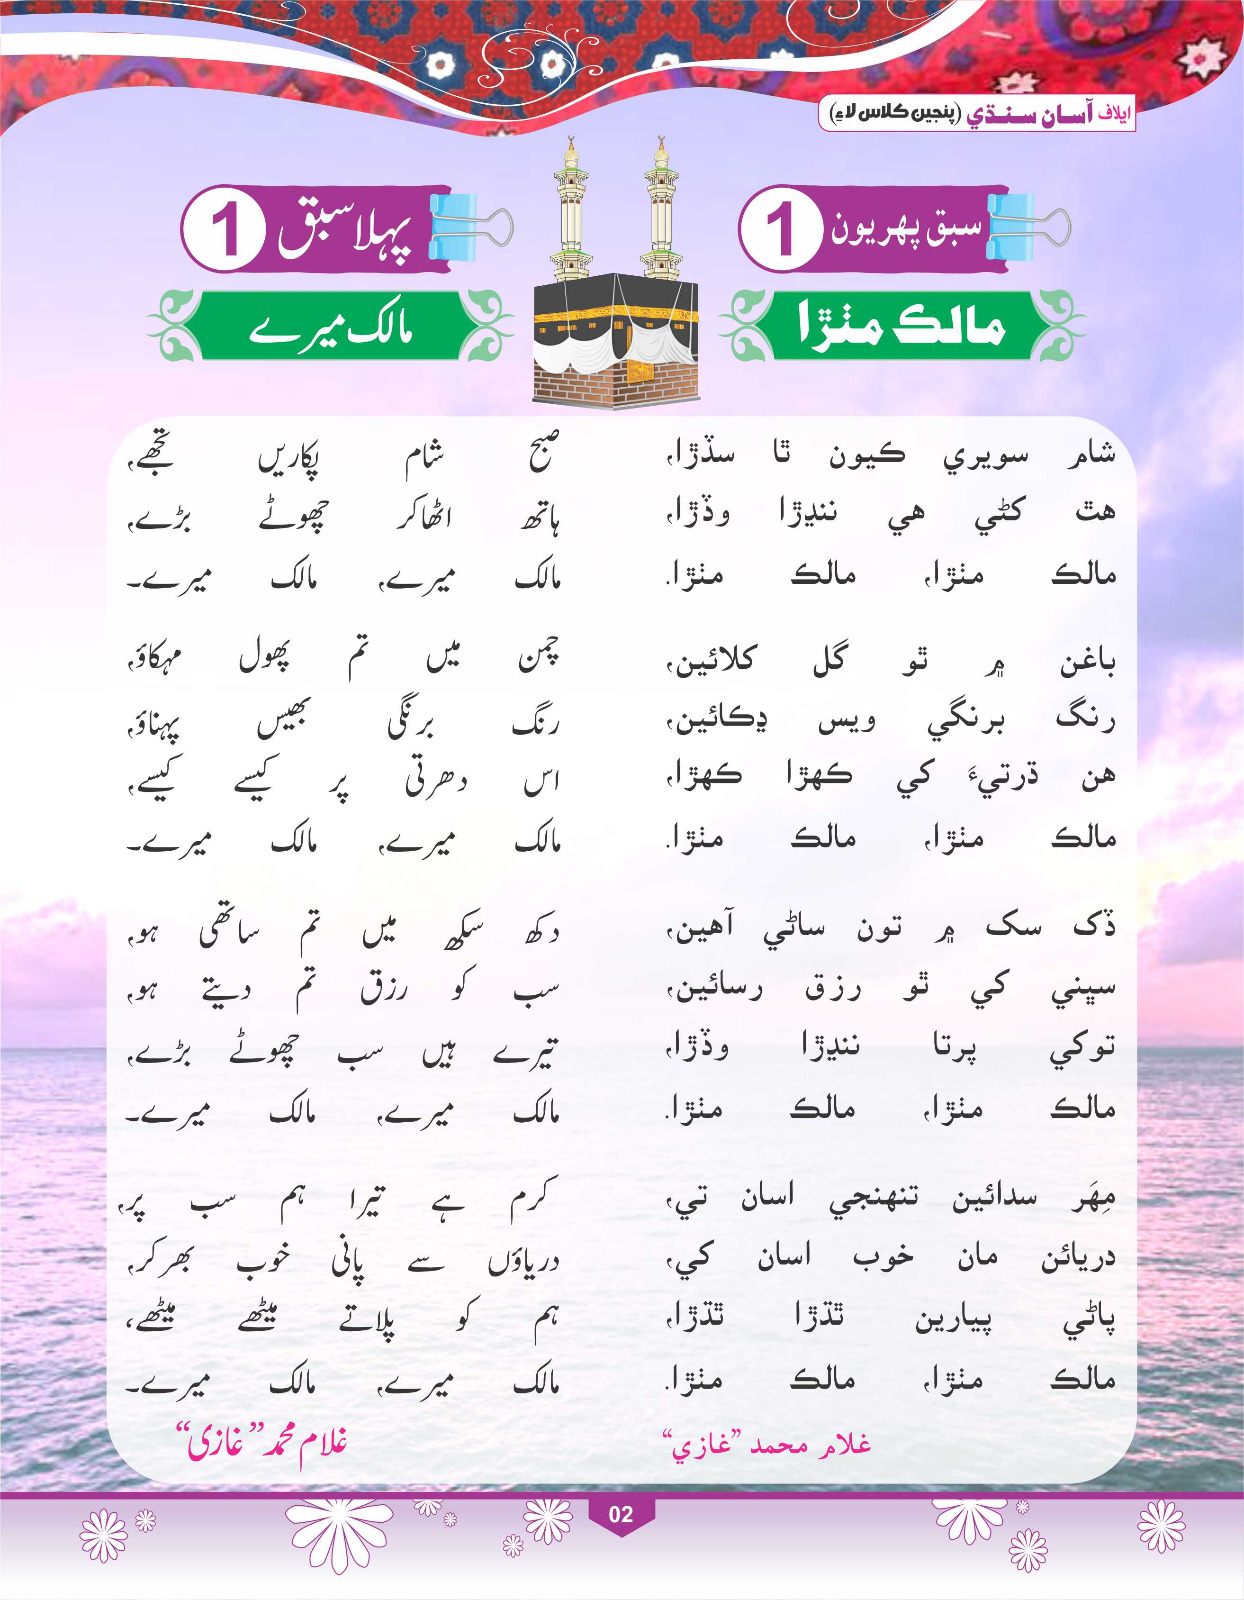 ايلاف آسان سنڌي (پنجين ڪلاس لاءِ)
سبق پهريون 1
مالڪ منڙا
شام سويري ڪيون ٿا سڏڙا،
هٿ کڻي هي ننڍڙا وڏڙا،
مالڪ منڙا، مالڪ منڙا.
باغن ۾ ٿو گل کلائين،
رنگ برنگي ويس ڍڪائين،
هن ڌرتيءَ کي ڪهڙا ڪهڙا،
مالڪ منڙا، مالڪ منڙا.
ڏک سک ۾ تون ساٿي آهين،
سڀني کي ٿو رزق رسائين،
توکي پرتا ننڍڙا وڏڙا،
مالڪ منڙا، مالڪ منڙا.
مِهَر سدائين تنهنجي اسان تي،
دريائن مان خوب اسان کي،
پاڻي پيارين ٿڌڙا ٿڌڙا،
مالڪ منڙا، مالڪ منڙا.
غلام محمد ”غازي“
پہلا سبق 1
مالک میرے
صبح شام پکاریں تجھے،
ہاتھ اٹھاکر چھوٹے بڑے،
مالک میرے، مالک میرے۔
چمن میں تم پھول مہکاؤ،
رنگ برنگی بھیس پہناؤ،
اس دھرتی پر کیسے کیسے،
مالک میرے، مالک میرے۔
دکھ سکھ میں تم ساتھی ہو،
سب کو رزق تم دیتے ہو،
تیرے ہیں سب چھوٹے بڑے،
مالک میرے، مالک میرے۔
کرم ہے تیرا ہم سب پر،
دریاؤں سے پانی خوب بھرکر،
ہم کو پلاتے میٹھے میٹھے،
مالک میرے، مالک میرے۔
غلام محمد ”غازی“
02